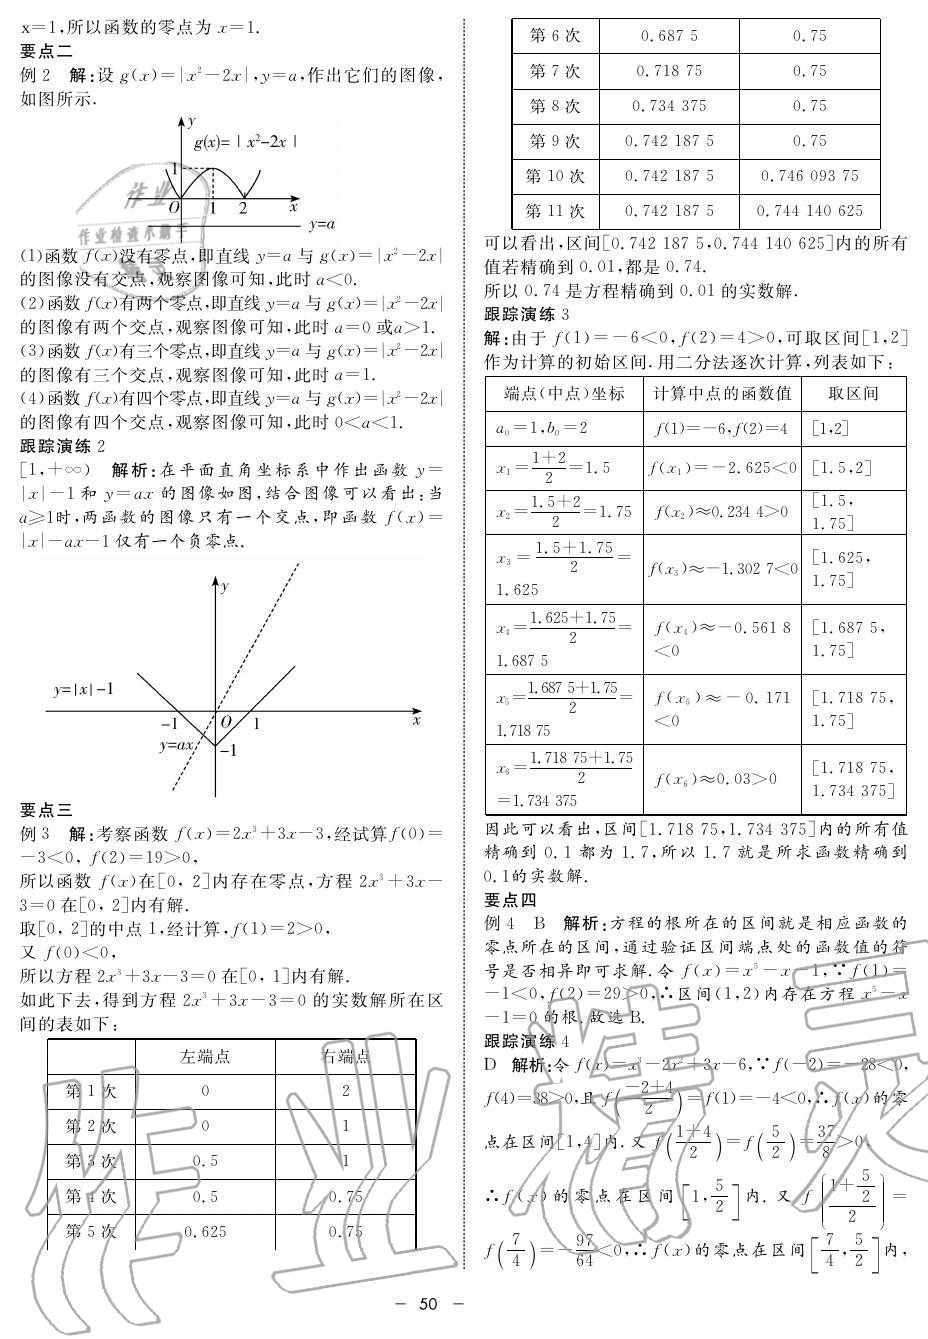 x=1,所以函数的零点为 x=1.
要点二
例 2　解:设 g(x)=|x²-2x|,y=a,作出它们的图像,
如图所示.
y
g(x)=|x²-2x|
1
O 1 2 x
y=a
(1)函数 f(x)没有零点,即直线 y=a 与 g(x)=|x²-2x|
的图像没有交点,观察图像可知,此时 a<0.
(2)函数 f(x)有两个零点,即直线 y=a 与 g(x)=|x²-2x|
的图像有两个交点,观察图像可知,此时 a=0 或a>1.
(3)函数 f(x)有三个零点,即直线 y=a 与 g(x)=|x²-2x|
的图像有三个交点,观察图像可知,此时 a=1.
(4)函数 f(x)有四个零点,即直线 y=a 与 g(x)=|x²-2x|
的图像有四个交点,观察图像可知,此时 0<a<1.
跟踪演练 2
[1,+∞)　解析:在平面直角坐标系中作出函数 y=
|x|-1 和 y=ax 的图像如图,结合图像可以看出:当
a⩾1时,两函数的图像只有一个交点,即函数 f(x)=
|x|-ax-1 仅有一个负零点.
y
y=|x|-1
-1 O 1 x
y=ax
-1
要点三
例 3　解:考察函数 f(x)=2x³+3x-3,经试算f(0)=
-3<0, f(2)=19>0,
所以函数 f(x)在[0, 2]内存在零点,方程 2x³+3x-
3=0 在[0, 2]内有解.
取[0, 2]的中点 1,经计算,f(1)=2>0,
又 f(0)<0,
所以方程 2x³+3x-3=0 在[0, 1]内有解.
如此下去,得到方程 2x³+3x-3=0 的实数解所在区
间的表如下:
左端点 右端点
第 1 次 0 2
第 2 次 0 1
第 3 次 0.5 1
第 4 次 0.5 0.75
第 5 次 0.625 0.75
第 6 次 0.687 5 0.75
第 7 次 0.718 75 0.75
第 8 次 0.734 375 0.75
第 9 次 0.742 187 5 0.75
第 10 次 0.742 187 5 0.746 093 75
第 11 次 0.742 187 5 0.744 140 625
可以看出,区间[0.742 187 5,0.744 140 625]内的所有
值若精确到 0.01,都是 0.74.
所以 0.74 是方程精确到 0.01 的实数解.
跟踪演练 3
解:由于 f(1)=-6<0,f(2)=4>0,可取区间[1,2]
作为计算的初始区间.用二分法逐次计算,列表如下:
端点(中点)坐标 计算中点的函数值 取区间
a₀=1,b₀=2 f(1)=-6,f(2)=4 [1,2]
x₁=(1+2)/2=1.5 f(x₁)=-2.625<0 [1.5,2]
x₂=(1.5+2)/2=1.75 f(x₂)≈0.234 4>0 [1.5,
1.75]
x₃=(1.5+1.75)/2=
1.625 f(x₃)≈-1.302 7<0 [1.625,
1.75]
x₄=(1.625+1.75)/2=
1.687 5 f(x₄)≈-0.561 8
<0 [1.687 5,
1.75]
x₅=(1.687 5+1.75)/2=
1.718 75 f(x₅)≈-0.171
<0 [1.718 75,
1.75]
x₆=(1.718 75+1.75)/2
=1.734 375 f(x₆)≈0.03>0 [1.718 75,
1.734 375]
因此可以看出,区间[1.718 75,1.734 375]内的所有值
精确到 0.1 都为 1.7,所以 1.7 就是所求函数精确到
0.1的实数解.
要点四
例 4　B　解析:方程的根所在的区间就是相应函数的
零点所在的区间,通过验证区间端点处的函数值的符
号是否相异即可求解.令 f(x)=x⁵-x-1,∵f(1)=
-1<0,f(2)=29>0,∴区间(1,2)内存在方程 x⁵-x
-1=0 的根.故选 B.
跟踪演练 4
D　解析:令 f(x)=x³-2x²+3x-6,∵f(-2)=-28<0,
f(4)=38>0,且 f((-2+4)/2)=f(1)=-4<0,∴f(x)的零
点在区间[1,4]内.又 f((1+4)/2)=f(5/2)=37/8>0,
∴f(x)的零点在区间[1,5/2]内.又 f((1+5/2)/2)=
f(7/4)=-97/64<0,∴f(x)的零点在区间[7/4,5/2]内,
- 50 -
作业
作业检查小助手
作业精灵